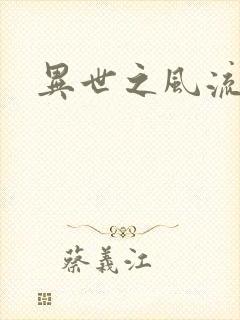 異世之風流
蔡義江